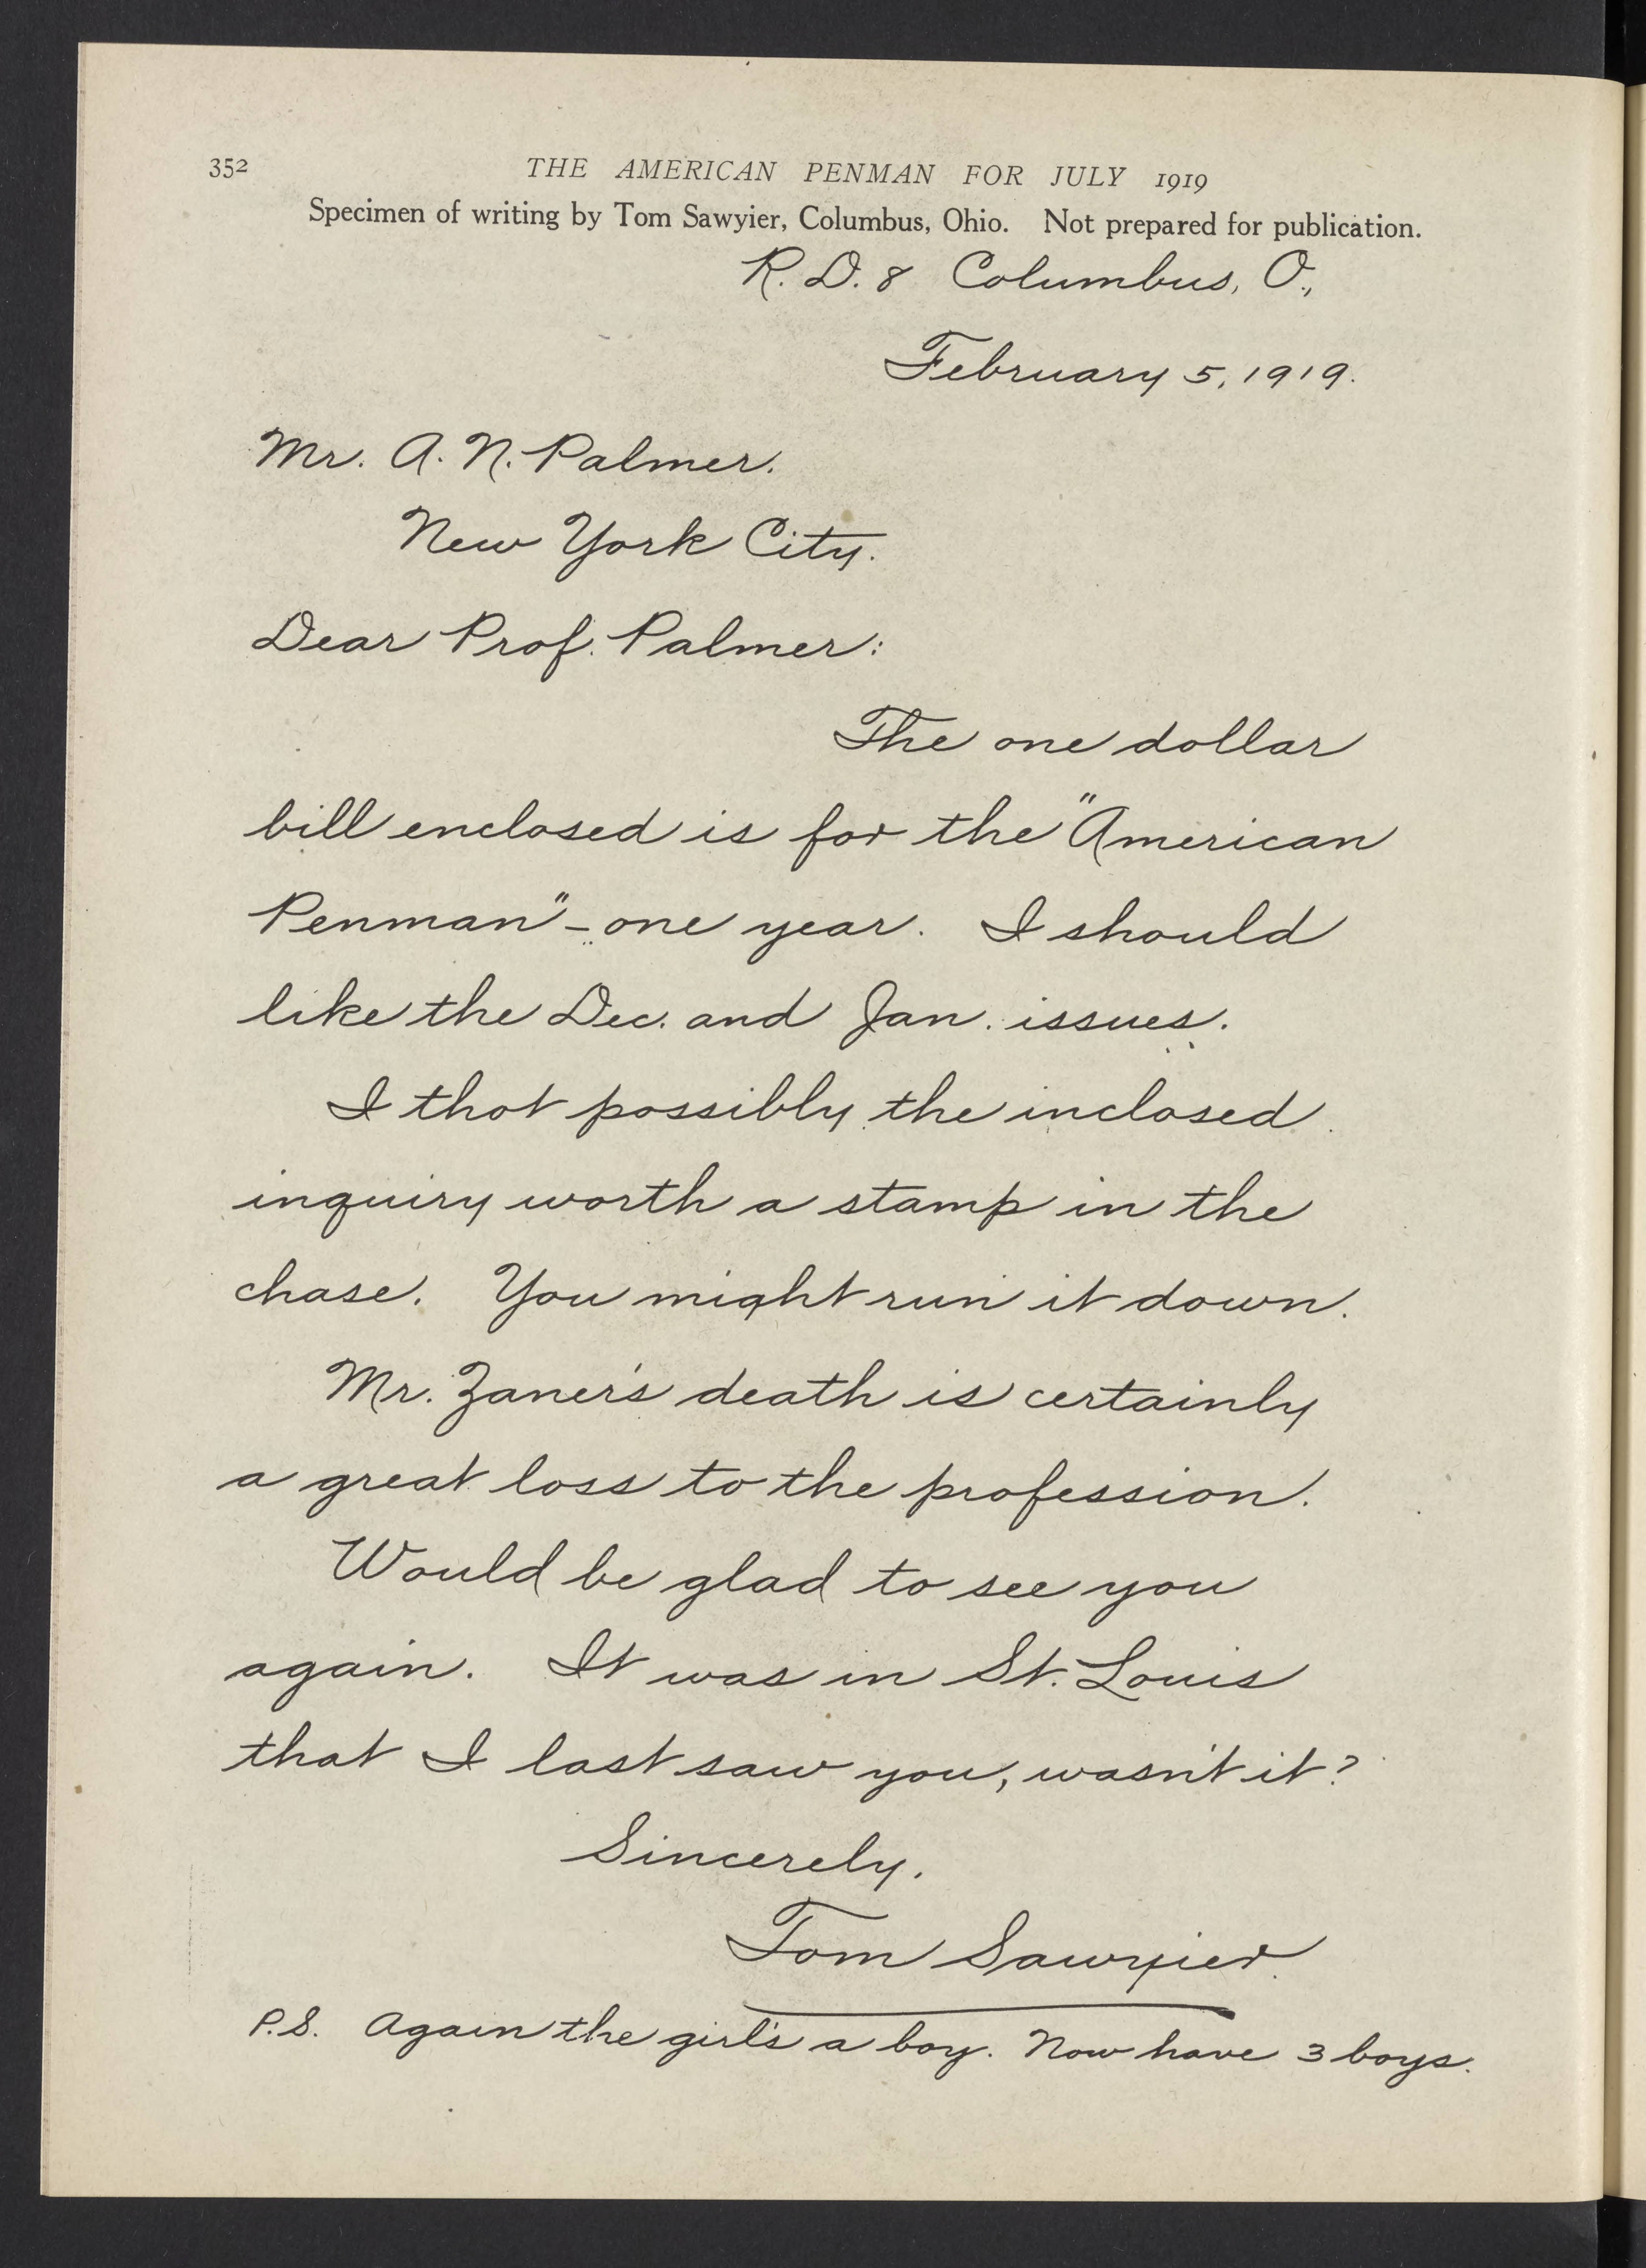 352 THE AMERICAN PENMAN FOR JULY 1919
Specimen of writing by Tom Sawyier, Columbus, Ohio. Not prepared for publication.
R. D. 8 Columbus, O.,
February 5, 1919.
Mr. A. N. Palmer.
New York City.
Dear Prof. Palmer:
The one dollar
bill enclosed is for the "American
Penman" - one year. I should
like the Dec. and Jan. issues.
I thot possibly the inclosed
inquiry worth a stamp in the
chase. You might run it down.
Mr. Zaner's death is certainly
a great loss to the profession.
Would be glad to see you
again. It was in St. Louis
that I last saw you, wasn't it?
Sincerely,
Tom Sawyier.
P.S. Again the girl's a boy. Now have 3 boys.